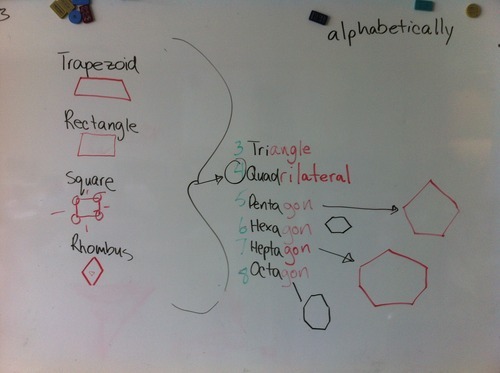 3
alphabetically
Trapezoid
Rectangle
Square
Rhombus
3 Triangle
4 Quadrilateral
5 Pentagon
6 Hexagon
7 Heptagon
8 Octagon